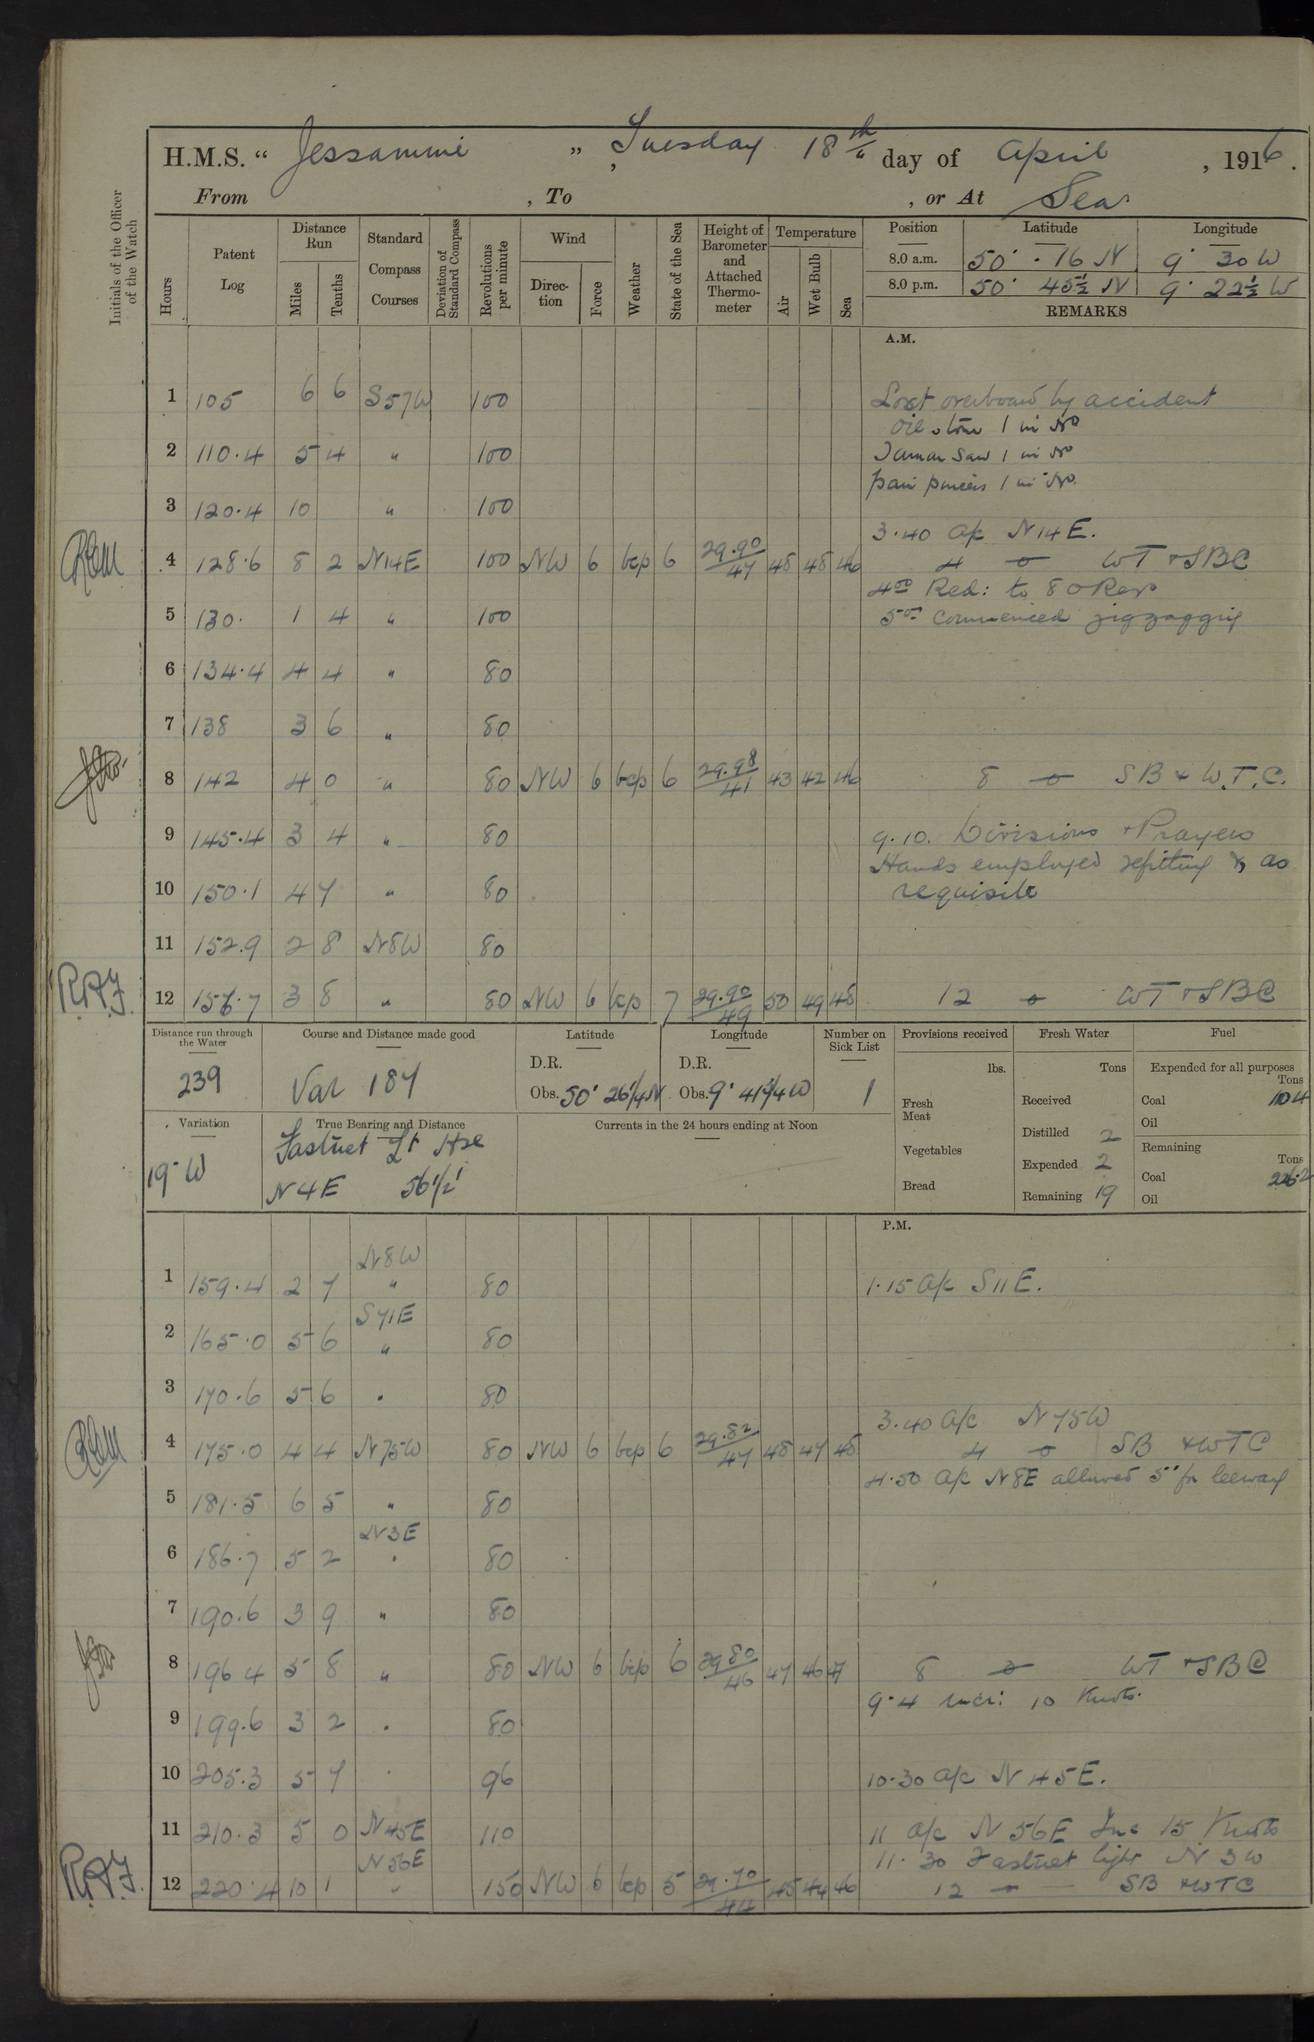 H.M.S. " Jessamine " , Tuesday 18th day of April , 1916.
From , To , or At Sea
Initials of the Officer of the Watch
Hours Patent Log Distance Run Miles Tenths Standard Compass Courses Deviation of Standard Compass Revolutions per minute Wind Direction Force Weather State of the Sea Height of Barometer and Attached Thermometer Temperature Air Wet Bulb Sea
Position Latitude Longitude
8.0 a.m. 50° 16 N 9° 30 W
8.0 p.m. 50° 45½ N 9° 22½ W
REMARKS
A.M.
1 105 6 6 S57W 100 Lost overboard by accident
oil stone 1 in No
2 110.4 5 4 " 100 saw 1 in No
pair pincers 1 in No.
3 120.4 10 " 100
3.40 a/c N14E.
4 128.6 8 2 N14E 100 NW 6 bcp 6 29.90/47 48 48 46 4 WT & SBC
4.00 Red: to 80 Revs
5 130. 1 4 " 100 5.00 Commenced zigzagging
6 134.4 4 4 " 80
7 138 3 6 " 80
8 142 4 0 " 80 NW 6 bcp 6 29.98/41 43 42 46 8 SB & W.T.C.
9 145.4 3 4 " 80 9.10. Divisions & Prayers
Hands employed refitting & as
10 150.1 4 7 " 80 requisite
11 152.9 2 8 N8W 80
R.A.J. 12 156.7 3 8 " 80 NW 6 bcp 7 29.90/49 50 49 48 12 WT & SBC
Distance run through the Water Course and Distance made good Latitude Longitude Number on Sick List Provisions received Fresh Water Fuel
239 Var 187 D.R. D.R. 1 lbs. Tons Expended for all purposes Tons
Obs. 50° 26¼ N Obs. 9° 41¾ W Fresh Meat Received Coal 10.4
Oil
Variation True Bearing and Distance Currents in the 24 hours ending at Noon
19° W Fastnet Lt Hse Vegetables Distilled 2 Remaining Tons
N4E 56½' Expended 2 Coal 226.2
Bread Remaining 19 Oil
P.M.
N8W
1 159.4 2 7 " 80 1.15 a/c S11E.
S71E
2 165.0 5 6 " 80
3 170.6 5 6 " 80
3.40 a/c N75W
4 175.0 4 4 N75W 80 NW 6 bcp 6 29.82/47 48 47 45 4 SB & WTC
4.50 a/c N8E allowed 5° for leeway
5 181.5 6 5 " 80
N3E
6 186.7 5 2 " 80
7 190.6 3 9 " 80
8 196 4 5 8 " 80 NW 6 bcp 6 29.80/46 47 46 47 8 WT & SBC
9.4 incr: 10 Knots.
9 199.6 3 2 " 80
10 205.3 5 7 " 96 10.30 a/c N45E.
11 210.3 5 0 N45E 110 11 a/c N56E Inc 15 Knots
N56E 11.30 Fastnet light N3W
R.A.J. 12 220.4 10 1 " 150 NW 6 bcp 5 29.70/44 45 44 46 12 SB & WTC